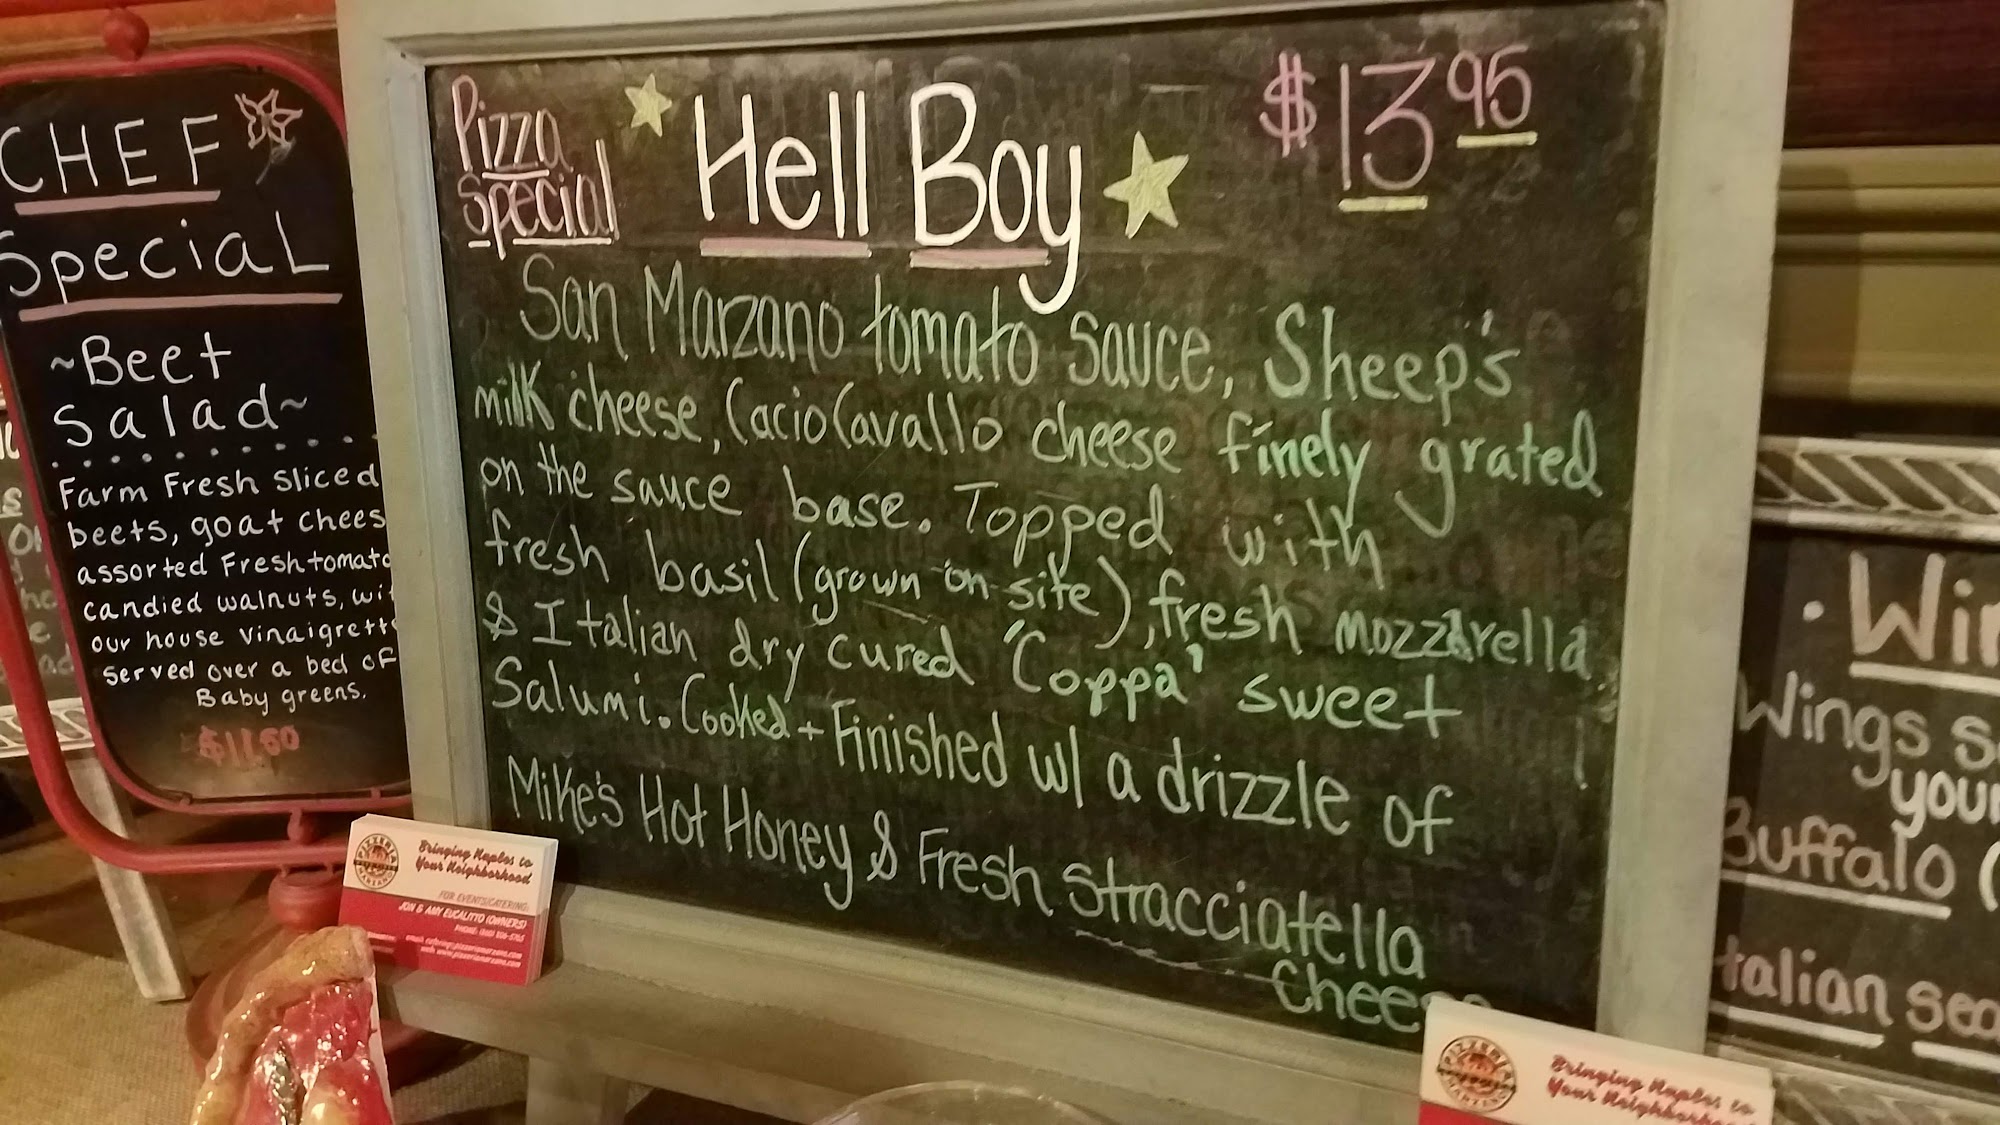 CHEF
Special
~Beet
Salad~
Farm Fresh sliced
beets, goat chees
assorted Fresh tomato
candied walnuts, wit
our house vinaigrette
served over a bed of
Baby greens.
$11.50
Pizza
Special
Hell Boy
$13.95
San Marzano tomato sauce, Sheep's
milk cheese, CacioCavallo cheese finely grated
on the sauce base. Topped with
fresh basil (grown on site), fresh mozzarella
& Italian dry cured 'Coppa' sweet
Salumi. Cooked + Finished w/ a drizzle of
Mike's Hot Honey & Fresh Stracciatella
Cheese
Bringing Naples to
Your Neighborhood
FOR EVENTS/CATERING:
JON & AMY EUCALITTO (OWNERS)
PIZZERIA
MARZANO
Win
Wings s
your
Buffalo (
talian sea
PIZZERIA
MARZANO
Bringing Naples to
Your Neighborhood